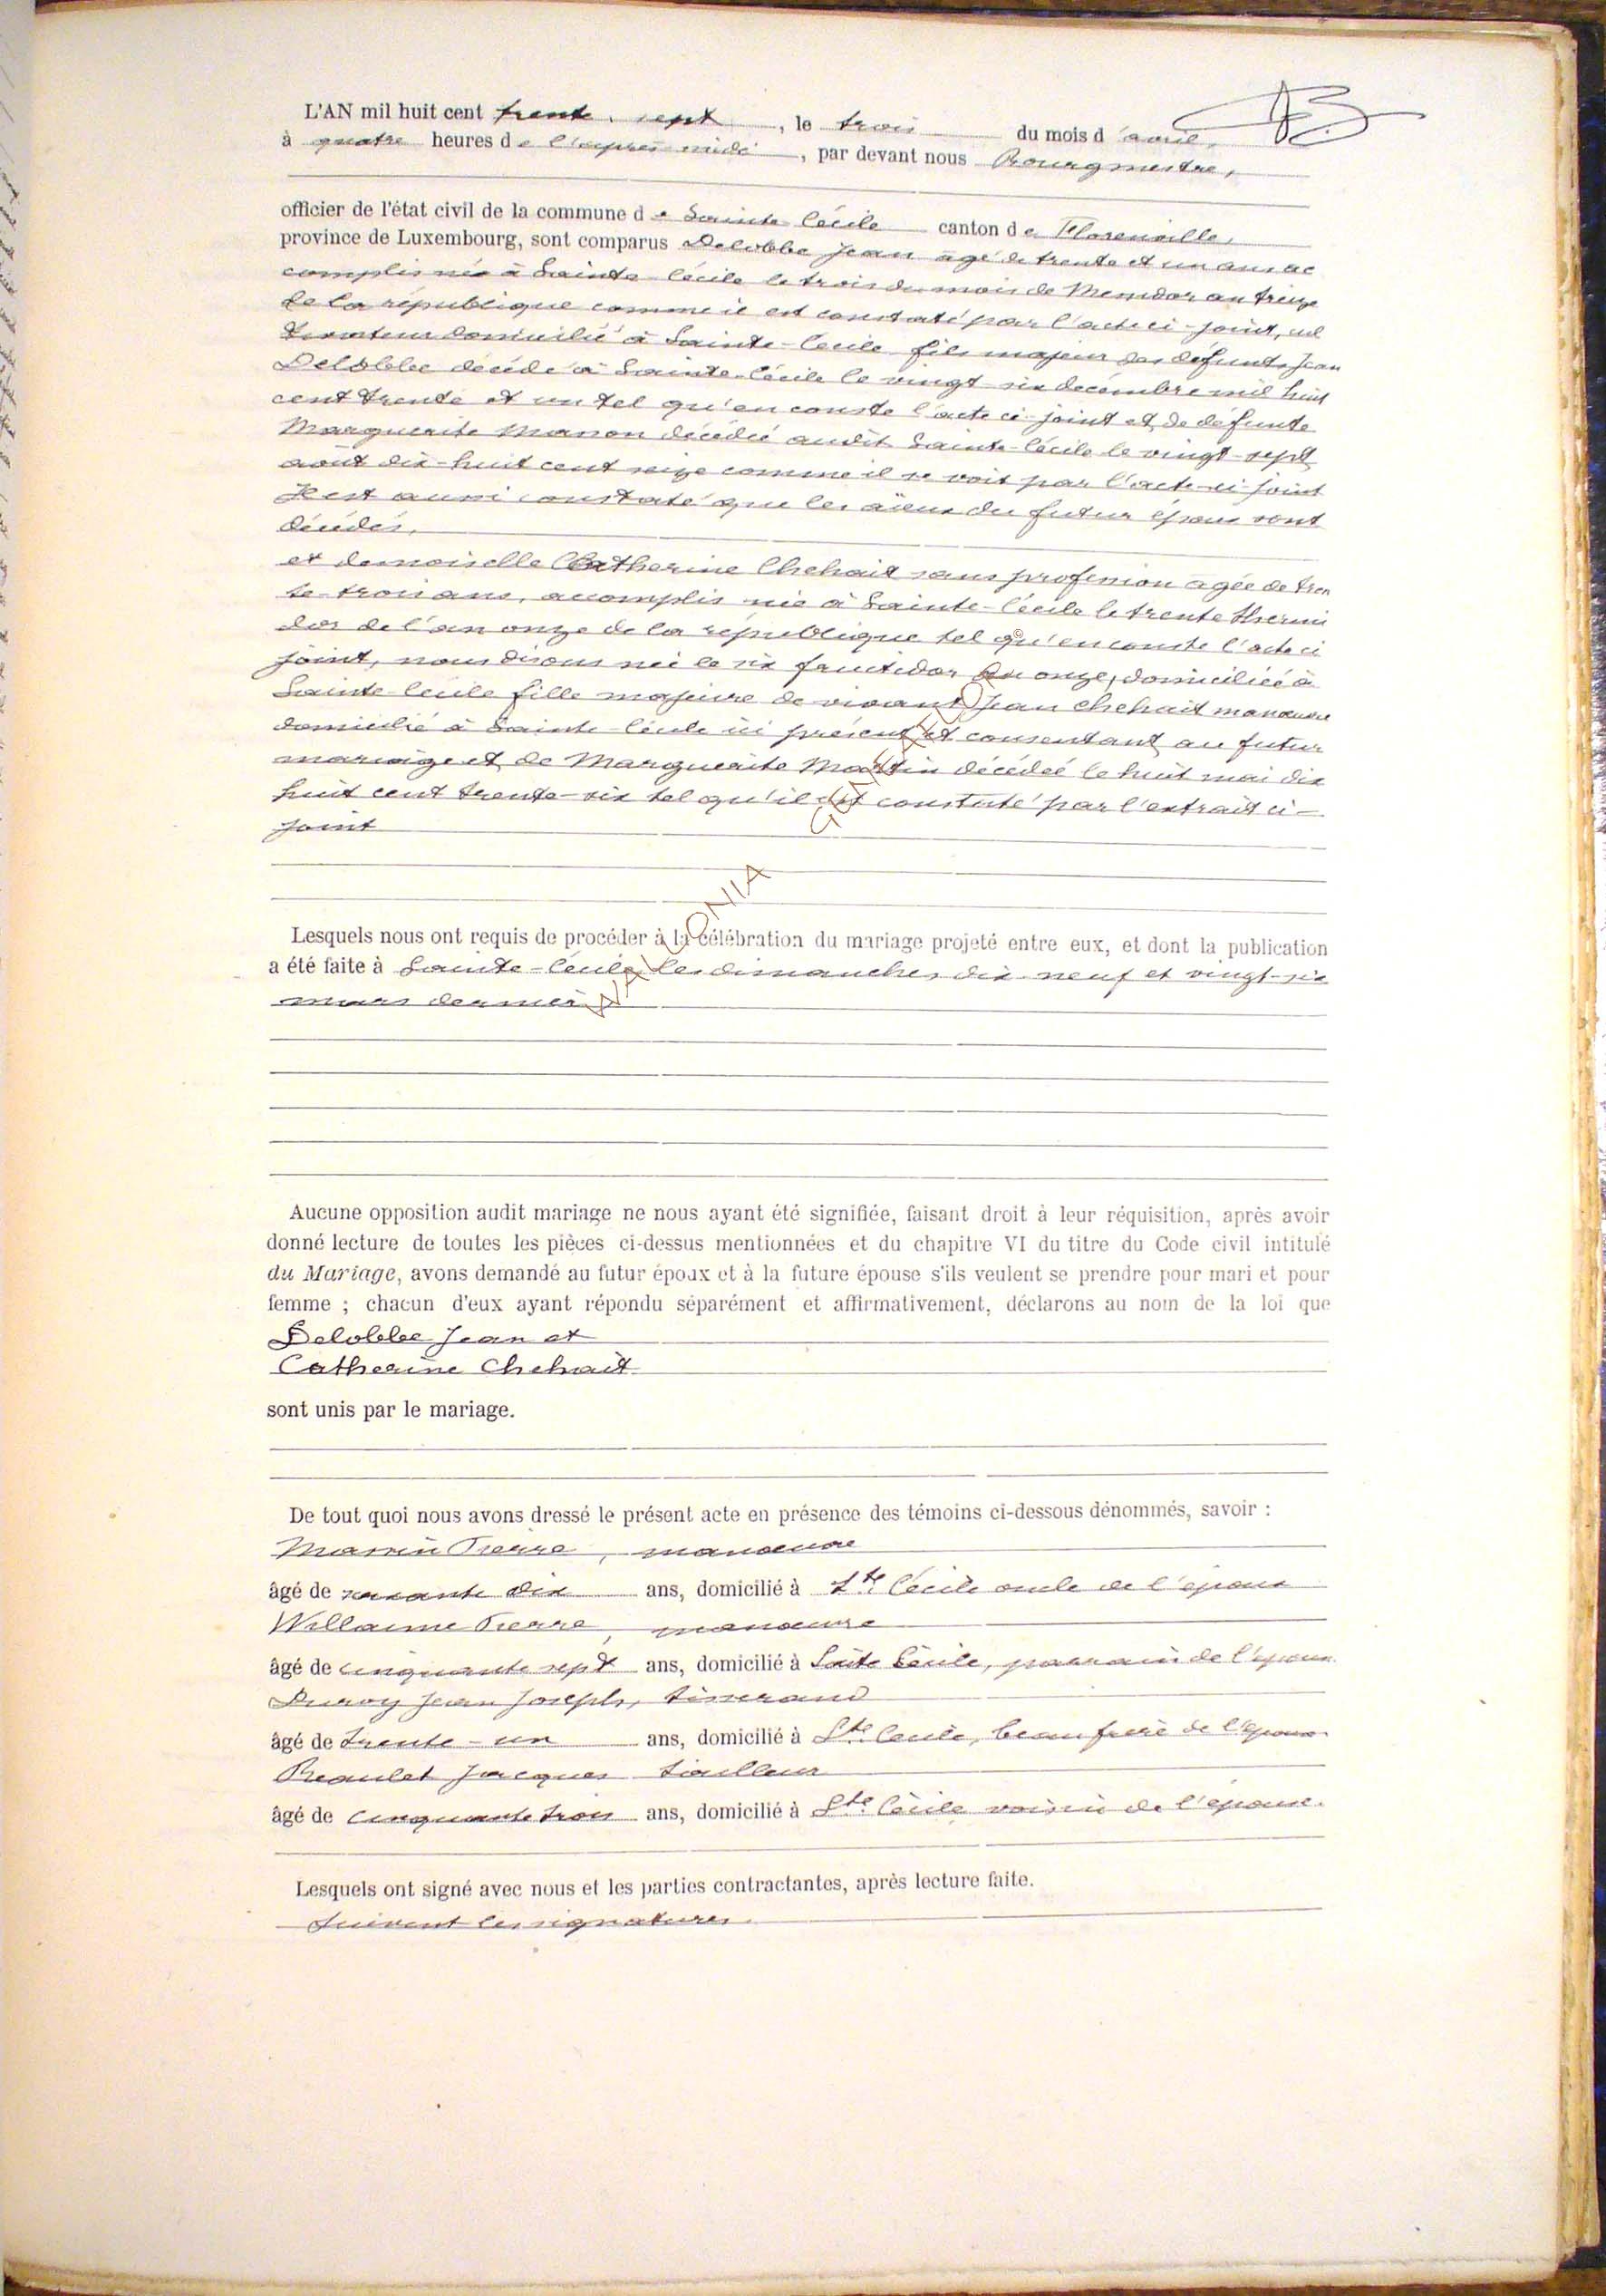 L'AN mil huit cent trente-sept, le trois du mois d'avril,
à quatre heures de l'après-midi, par devant nous Bourgmestre,
officier de l'état civil de la commune de Sainte-Cécile canton de Florenville,
province de Luxembourg, sont comparus Delobbe Jean âgé de trente et un ans ac
complis né à Sainte-Cécile le trois du mois de Messidor an treize
de la république comme il est constaté par l'acte ci-joint, cul
tivateur domicilié à Sainte-Cécile fils majeur des défunts Jean
Delobbe décédé à Sainte-Cécile le vingt-six decembre mil huit
cent trente et un tel qu'en conste l'acte ci-joint et de défunte
Marguerite Manon décédée audit Sainte-Cécile le vingt-sept
août dix-huit cent seize comme il se voit par l'acte ci-joint
Il est aussi constaté que les aïeux du futur époux sont
décédés,
et demoiselle Catherine Chehait sans profession âgée de tren
te-trois ans, accomplis née à Sainte-Cécile le trente thermi
dor de l'an onze de la république tel qu'en conste l'acte ci
joint, nous disons née le six fructidor an onze, domiciliée à
Sainte-Cécile fille majeure de vivant Jean Chehait manœuvre
domicilié à Sainte-Cécile ici présent et consentant au futur
mariage et de Marguerite Martin décédée le huit mai dix
huit cent trente-six tel qu'il est constaté par l'extrait ci-
joint
Lesquels nous ont requis de procéder à la célébration du mariage projeté entre eux, et dont la publication
a été faite à Sainte-Cécile les dimanches dix-neuf et vingt-six
mars dernier
Aucune opposition audit mariage ne nous ayant été signifiée, faisant droit à leur réquisition, après avoir
donné lecture de toutes les pièces ci-dessus mentionnées et du chapitre VI du titre du Code civil intitulé
du Mariage, avons demandé au futur époux et à la future épouse s'ils veulent se prendre pour mari et pour
femme ; chacun d'eux ayant répondu séparément et affirmativement, déclarons au nom de la loi que
Delobbe Jean et
Catherine Chehait
sont unis par le mariage.
De tout quoi nous avons dressé le présent acte en présence des témoins ci-dessous dénommés, savoir :
Pierre, manœuvre
âgé de soixante dix ans, domicilié à Ste Cécile oncle de l'époux
Willaume Pierre, manœuvre
âgé de cinquante sept ans, domicilié à Sainte Cécile, parrain de l'époux
Duroy Jean Joseph, tisserand
âgé de trente-un ans, domicilié à Ste Cécile, beau frère de l'époux
Beaulet Jacques tailleur
âgé de cinquante trois ans, domicilié à Ste Cécile voisin de l'épouse.
Lesquels ont signé avec nous et les parties contractantes, après lecture faite.
Suivent les signatures.
WALLONIA